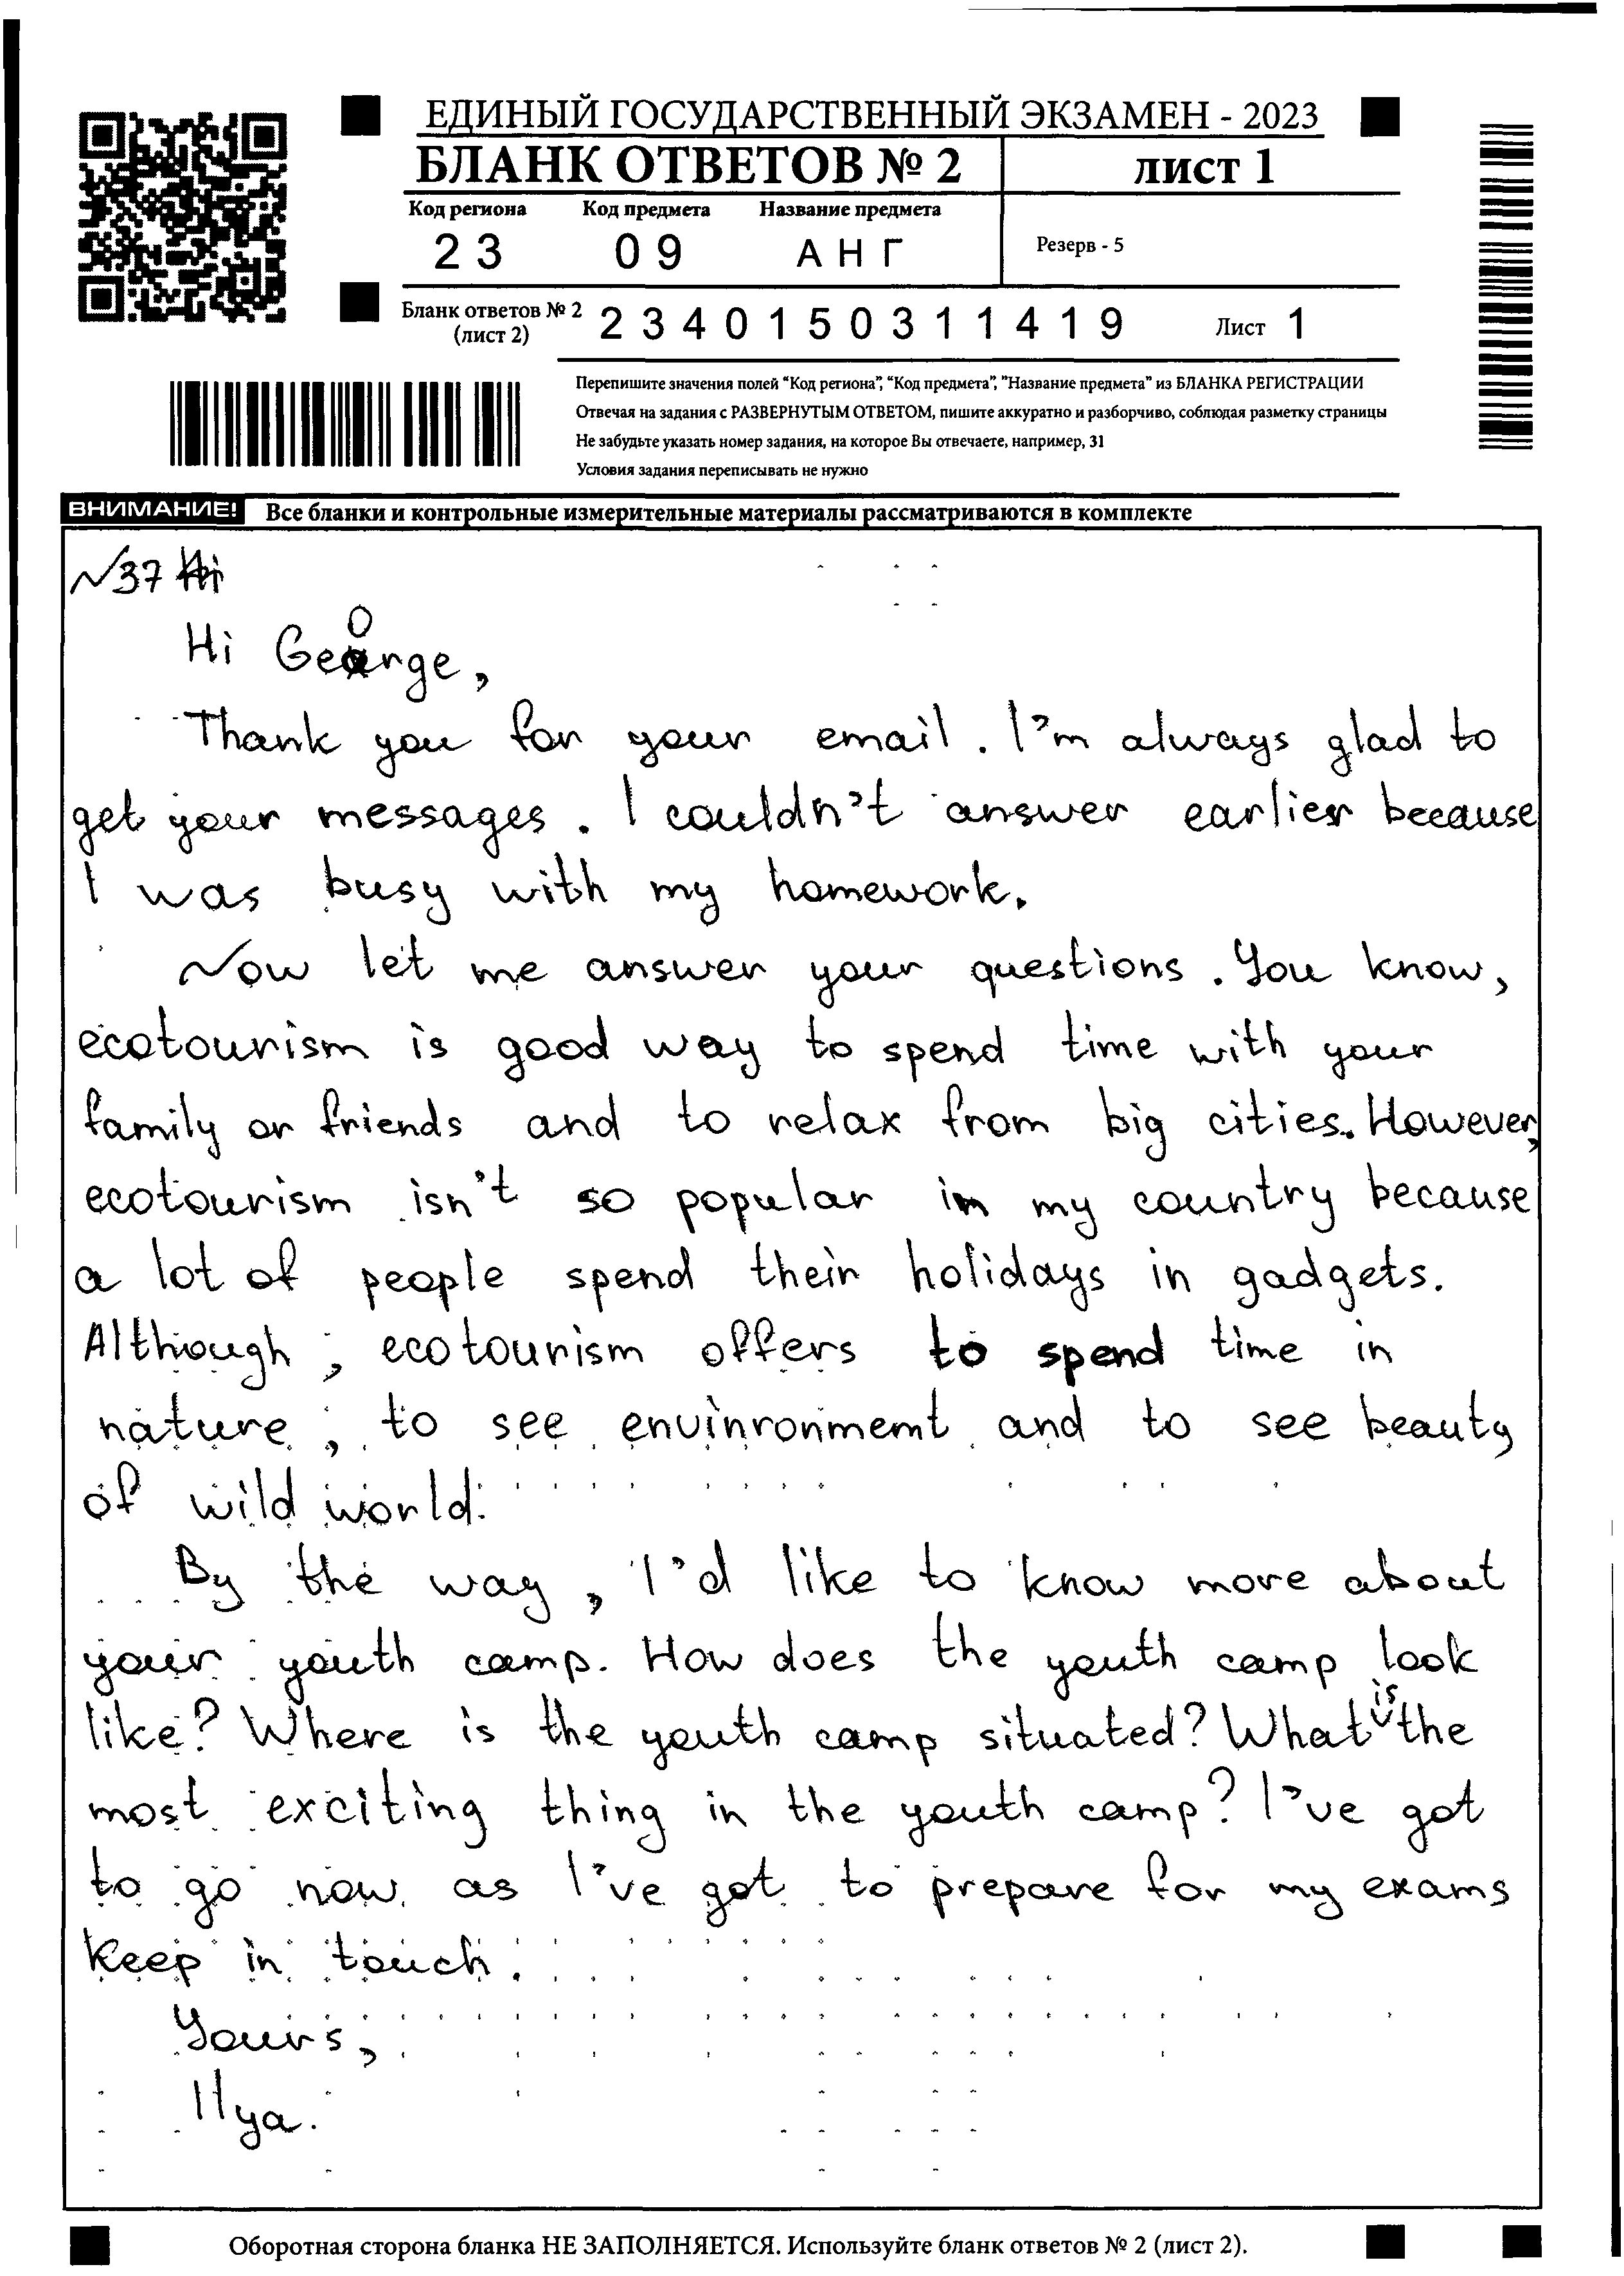 ЕДИНЫЙ ГОСУДАРСТВЕННЫЙ ЭКЗАМЕН - 2023
БЛАНК ОТВЕТОВ № 2 лист 1
Код региона Код предмета Название предмета
23 09 АНГ Резерв - 5
Бланк ответов № 2 (лист 2) 2340150311419 Лист 1
Перепишите значения полей "Код региона", "Код предмета", "Название предмета" из БЛАНКА РЕГИСТРАЦИИ
Отвечая на задания с РАЗВЕРНУТЫМ ОТВЕТОМ, пишите аккуратно и разборчиво, соблюдая разметку страницы
Не забудьте указать номер задания, на которое Вы отвечаете, например, 31
Условия задания переписывать не нужно
ВНИМАНИЕ! Все бланки и контрольные измерительные материалы рассматриваются в комплекте
№37 Hi
Hi George,
Thank you for your email. I'm always glad to
get your messages. I couldn't answer earlier because
I was busy with my homework.
Now let me answer your questions. You know,
ecotourism is good way to spend time with your
family or friends and to relax from big cities. However,
ecotourism isn't so popular in my country because
a lot of people spend their holidays in gadgets.
Although, ecotourism offers to spend time in
nature, to see envinronment and to see beauty
of wild world.
By the way, I'd like to know more about
your youth camp. How does the youth camp look
like? Where is the youth camp situated? What is the
most exciting thing in the youth camp? I've got
to go now as I've got to prepare for my exams
keep in touch.
Yours,
Ilya.
Оборотная сторона бланка НЕ ЗАПОЛНЯЕТСЯ. Используйте бланк ответов № 2 (лист 2).